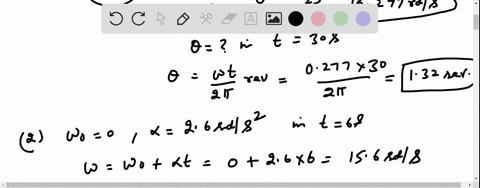 θ = ? in t = 30s
θ = ωt/2π rev = 0.277 × 30/2π = 1.32 rev.
(2) ω₀ = 0 , α = 2.6 rd/s² in t = 6s
ω = ω₀ + αt = 0 + 2.6 × 6 = 15.6 rd/s